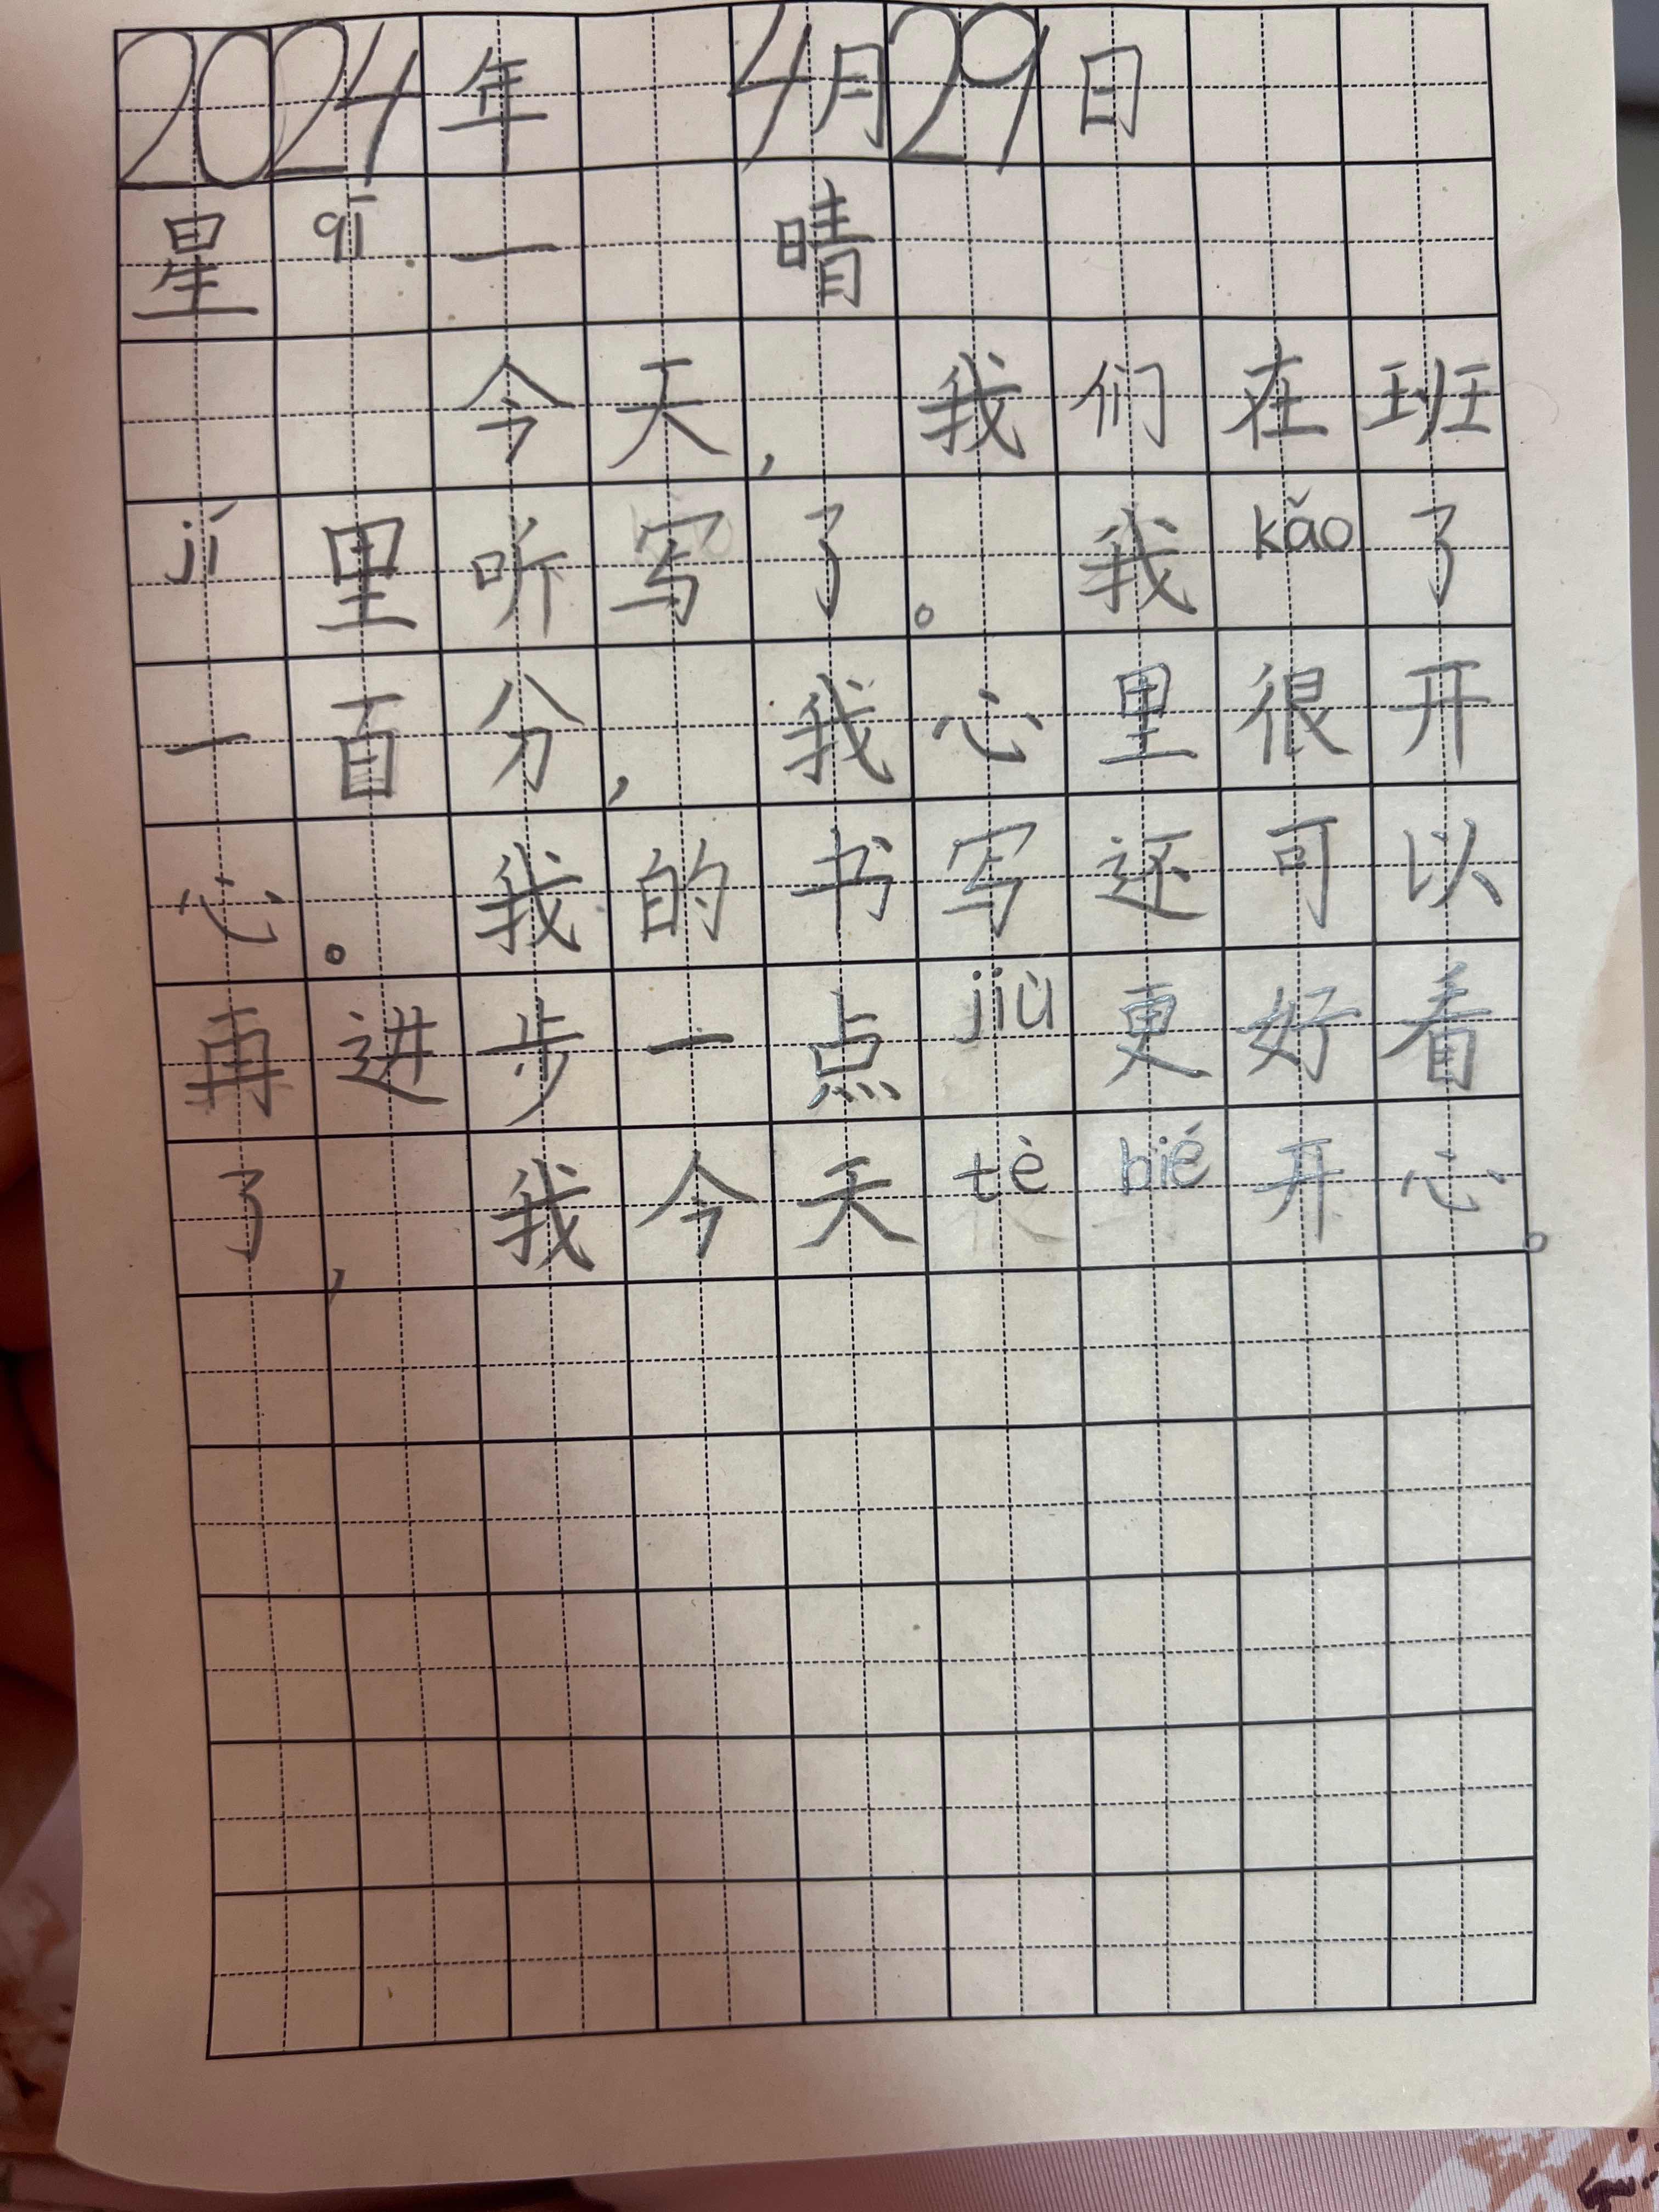 2024年 4月29日
星qī一 晴
今天，我们在班
jí里听写了。我kǎo了
一百分，我心里很开
心。我的书写还可以
再进步一点jiù更好看
了，我今天tè bié开心。